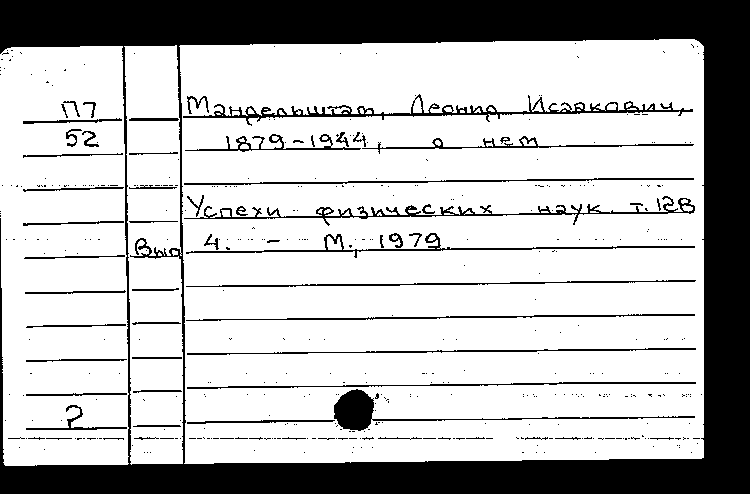 П7 Мандельштам, Леонид Исаакович,
52 1879-1944, о нем
Успехи физических наук т.128
Вып 4. - М., 1979
Р